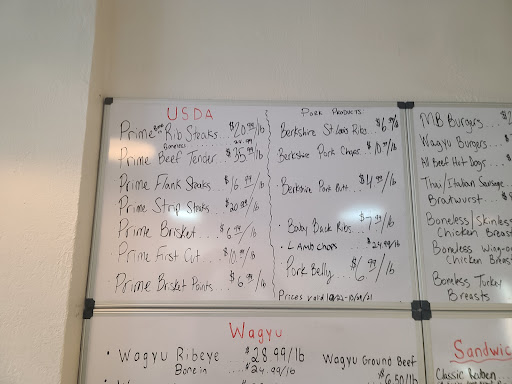 USDA
Prime Bone Rib Steaks... $20.99/lb
Boneless 22.99
Prime Beef Tender.. $35.99/lb
Prime Flank Steaks... $16.99/lb
Prime Strip Steaks... $20.99/lb
Prime Brisket... $6.99/lb
Prime First Cut... $10.99/lb
Prime Brisket Points... $6.99/lb
Pork Products
Berkshire St Louis Ribs.. $6.99/lb
Berkshire Pork Chops.. $10.99/lb
Berkshire Pork Butt.. $4.99/lb
Baby Back Ribs.. $7.99/lb
Lamb chops... $24.99/lb
Pork Belly... $6.99/lb
Prices valid
MB Burgers.. $2
Wagyu Burgers..
All Beef Hot Dogs..
Thai/Italian Sausage
Bratwurst... $8
Boneless/Skinless
Chicken Breast
Boneless Wing-on
Chicken Breast
Boneless Turkey
Breasts
Wagyu
Wagyu Ribeye ..$28.99/lb
Bone in ....$24.99/lb
Wagyu Ground Beef
$6.50/lb
Sandwic
Classic Reuben...